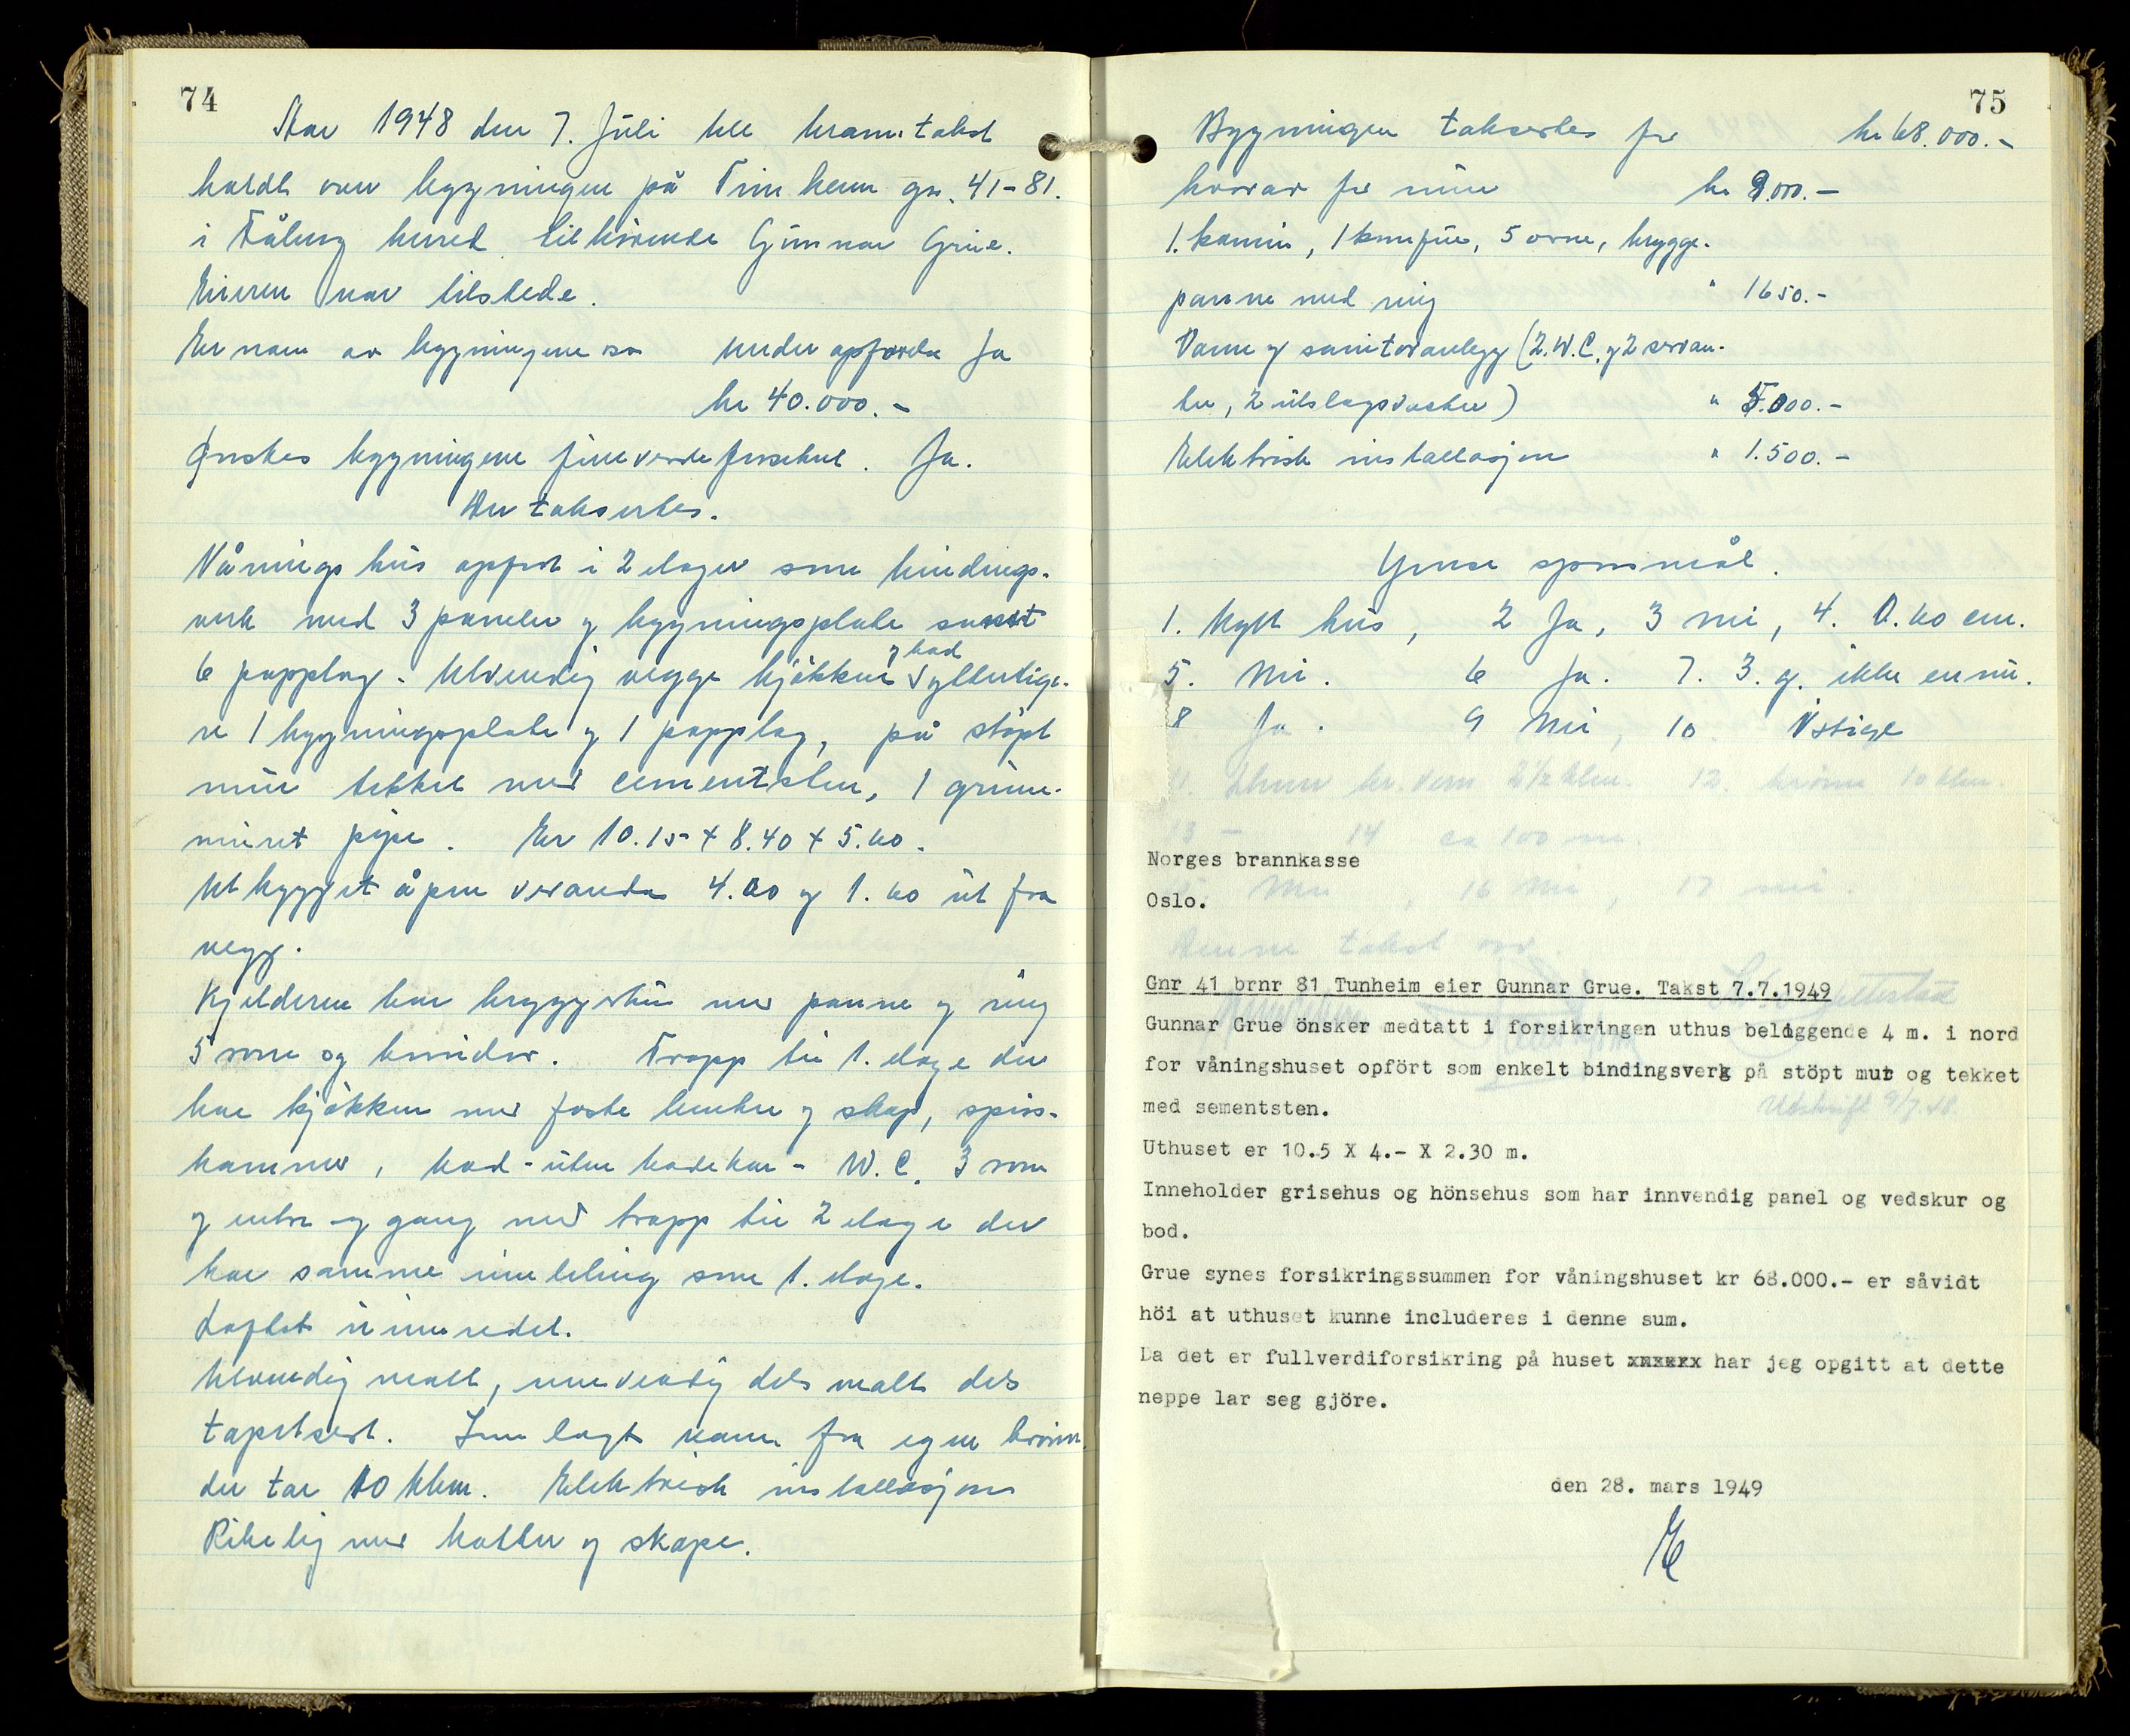 74
Aar 1948 den 7. Juli ble branntakst
holdt over bygningene på Tunheim gn. 41-81.
i Våler herred tilhörende Gunnar Grue.
Eieren var tilstede.
Er noen av bygningene  under opförelse Ja
kr 40.000.-
Önskes bygningene fullverdiforsikret. Ja.
Der taksertes.
Våningshus opfört i 2 etager som bindings-
verk med 3 paneler og bygningsplate samt
6 papplag. Utvendig vegger kjökken og bad ytterlige-
re 1 bygningsplate og 1 papplag, på stöpt
mur tekket med cementsten, 1 grunn-
muret pipe. Er 10.15 + 8.40 + 5.60.
Utbygget åpen veranda 4.00 og 1.60 ut fra
vegg.
Kjelderen har bryggerhus med panne og ring
5 rom og korridor. Trapp til 1. etage der
har kjökken med faste benker og skap, spis-
kammer, bad - uten badekar - W.C. 3 rom
og entre og gang med trapp til 2 etage der
har samme inndeling som 1. etage.
Loftet uinnredet.
Utvendig malt, innvendig dels malt dels
tapetsert. Innlagt vann fra egen brönn
der tar 10 kbm. Elektrisk installasjon
Rikelig med kotter og skape.
75
Bygningen taksertes for kr 68.000.-
hvorav for mur kr 9.000.-
1. kamin, 1 komfur, 5 ovne, brygge-
panne med ring " 1650.-
Vann og sanitæranlegg (2. W.C. og 2 servan-
ter, 2 utslagsvasker) " 5.000.-
Elektrisk installasjon " 1.500.-
Ymse spörsmål.
1. Nytt hus, 2 Ja, 3 nei, 4. 0.60 cm.
5. Nei. 6 Ja. 7. 3. g. ikke ennu.
8 Ja. 9 Nei, 10. Östige
11. br. vern 2½ klm. 12. brönn 10 kbm.
13 - 14 ca 100 m.
Nei, 16 Nei, 17 nei.
Denne takst
Utskrift 9/7.48.
Norges brannkasse
Oslo.
Gnr 41 brnr 81 Tunheim eier Gunnar Grue. Takst 7.7.1949
Gunnar Grue önsker medtatt i forsikringen uthus beliggende 4 m. i nord
for våningshuset opfört som enkelt bindingsverk på stöpt mur og tekket
med sementsten.
Uthuset er 10.5 X 4.- X 2.30 m.
Inneholder grisehus og hönsehus som har innvendig panel og vedskur og
bod.
Grue synes forsikringssummen for våningshuset kr 68.000.- er såvidt
höi at uthuset kunne includeres i denne sum.
Da det er fullverdiforsikring på huset xxxxxx har jeg opgitt at dette
neppe lar seg gjöre.
den 28. mars 1949